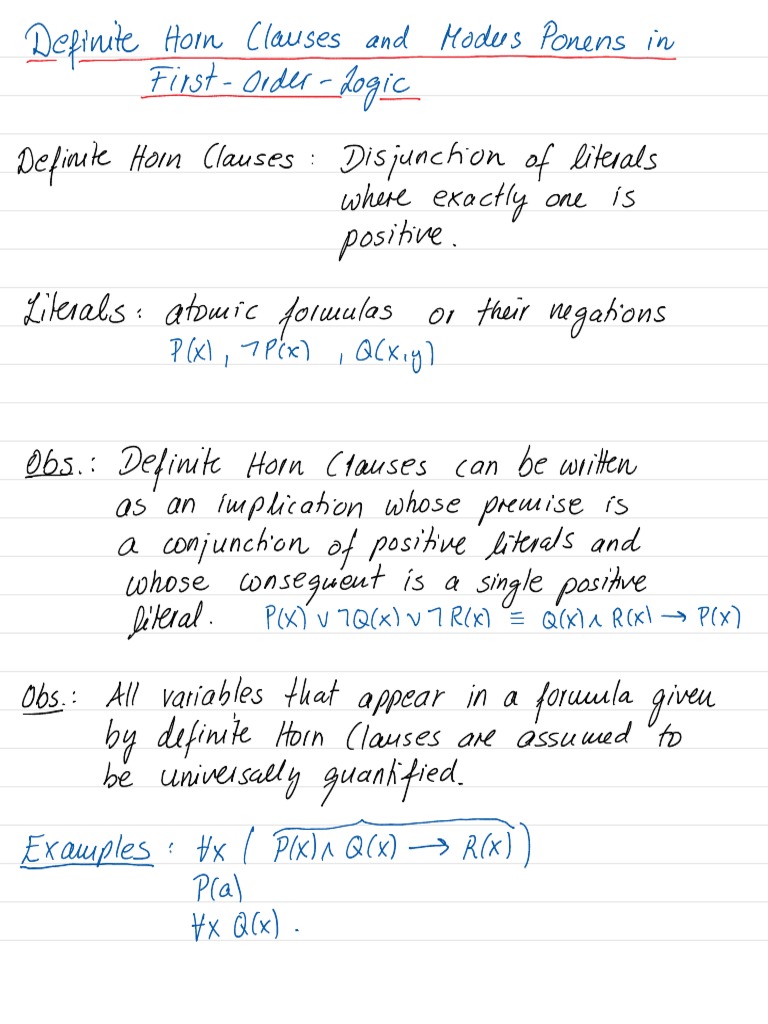 Definite Horn Clauses and Modus Ponens in
First-Order-Logic
Definite Horn Clauses : Disjunction of literals
where exactly one is
positive.
Literals : atomic formulas or their negations
P(x), ¬P(x), Q(x,y)
Obs.: Definite Horn Clauses can be written
as an implication whose premise is
a conjunction of positive literals and
whose consequent is a single positive
literal. P(x) ∨ ¬Q(x) ∨ ¬R(x) ≡ Q(x) ∧ R(x) → P(x)
Obs.: All variables that appear in a formula given
by definite Horn Clauses are assumed to
be universally quantified.
Examples : ∀x ( P(x) ∧ Q(x) → R(x) )
P(a)
∀x Q(x).